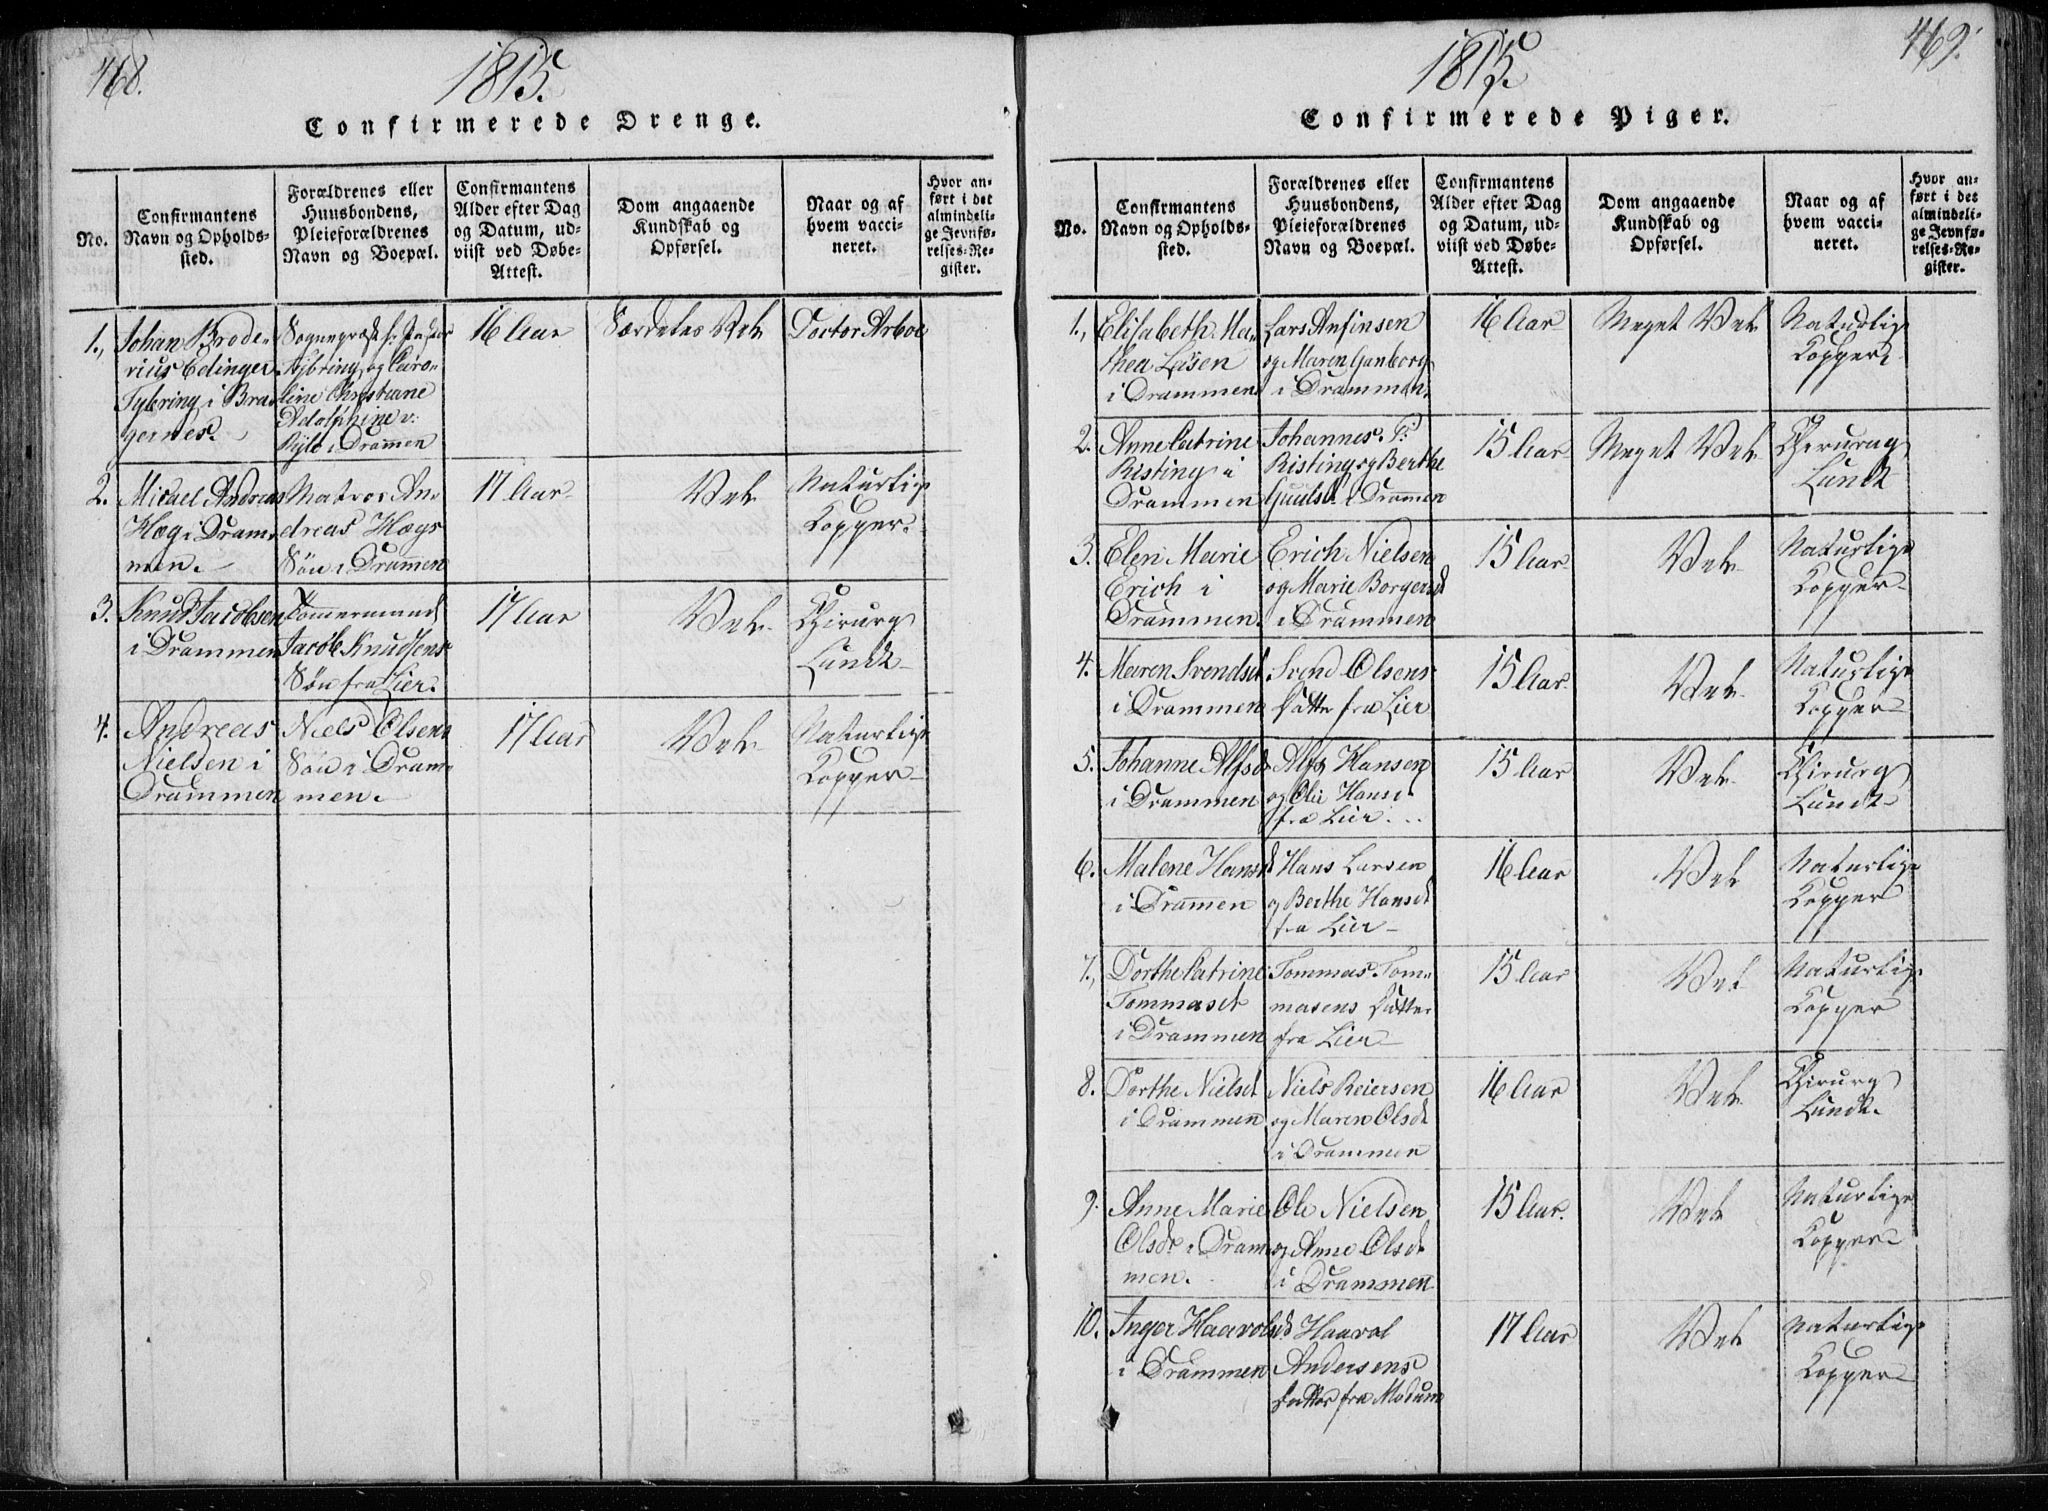 468.
1815.
Confirmerede Drenge.
No.
Confirmantens
Navn og Opholds-
sted.
Forældrenes eller
Huusbondens,
Pleieforældrenes
Navn og Boepæl.
Confirmantens
Alder efter Dag
og Datum, ud-
viist ved Døbe-
Attest.
Dom angaaende
Kundskab og
Opførsel.
Naar og af
hvem vacci-
neret.
Hvor an-
ført i det
almindeli-
ge Jevnfø-
relses-Re-
gister.
1.,
Johan Brode-
rius Edinger
Tybring i Bra-
gernes.
Sognepræst
Tybring og Caro-
line Christiane
Adolphine v:
i Drammen
16 Aar
Særdeles Vel
Doctor Arboe
2.
Micael Andreas
Høeg i Dram-
men.
Matros An-
dreas Høegs
Søn i Drammen
17 Aar
Vel
Naturlige
Kopper.
3.
Knud Jacobsen
i Drammen
Tømmermand
Jacob Knudsens
Søn fra Lier.
17 Aar
Vel
Chirurg
Lundt
4.
Andreas
Nielsen i
Drammen
Niels Olsens
Søn i Dram-
men.
17 Aar
Vel
Naturlige
Kopper
469.
1815.
Confirmerede Piger.
No.
Confirmantens
Navn og Opholds-
sted.
Forældrenes eller
Huusbondens,
Pleieforældrenes
Navn og Boepæl.
Confirmantens
Alder efter Dag
og Datum, ud-
viist ved Døbe-
Attest.
Dom angaaende
Kundskab og
Opførsel.
Naar og af
hvem vacci-
neret.
Hvor an-
ført i det
almindeli-
ge Jevnfø-
relses-Re-
gister.
1.,
Elisabeth Ma-
thea Låsen
i Drammen
Lars Anfinsen
og Maren Ganborg
i Drammen.
16 Aar
Meget Vel
Naturlige
Kopper
2.
Anne Catrine
Risting i
Drammen
Johannes P:
Risting og Berthe
Guulsd. i Drammen
15 Aar
Meget Vel
Chirurg
Lundt
3.
Elen Marie
Erich i
Drammen.
Erich Nielsen
og Marie Borgersd
i Drammen
15 Aar
Vel
Naturlige
Kopper
4.
Maren Svendsd
i Drammen
Svend Olsens
Datter fra Lier
15 Aar
Vel
Naturlige
Kopper
5.
Johanne Alfsd
i Drammen
Alf Hansen
og Olie Hansd
fra Lier
15 Aar
Vel
Chirurg
Lundt
6.
Malene Hansd
i Drammen
Hans Larsen
og Berthe Hansd
fra Lier
16 Aar
Vel
Naturlige
Kopper
7.,
Dorthe Catrine
Tommasd
i Drammen
Tommas Tom-
masens Datter
fra Lier
15 Aar
Vel
Naturlige
Kopper
8.
Dorthe Nielsd
i Drammen
Niels Reiersen
og Maren Olsd
i Drammen
16 Aar
Vel
Chirurg
Lundt.
9.
Anne Marie
Olsd. i Dram-
men.
Ole Nielsen
og Anne Olsd
i Drammen
15 Aar.
Vel
Naturlige
Kopper
10.
Inger Haavolsd
i Drammen
Haavol
Andersens
Datter fra Modum
17 Aar
Vel
Naturlige
Kopper